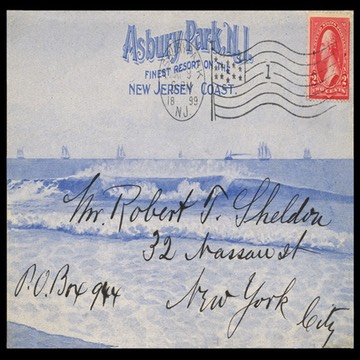 Asbury Park, N.J.
FINEST RESORT ON THE
NEW JERSEY COAST.
1899
N.J.
1
2 2
TWO CENTS
Mr. Robert T. Sheldon
32 Nassau st
P.O. Box 944
New York
City